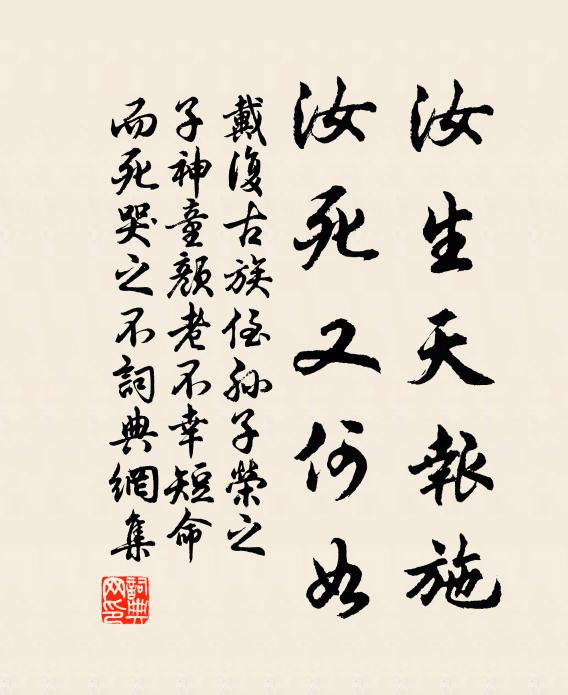 汝生天報施
汝死又何如
戴復古族侄孫子榮之
子神童顏老不幸短命
而死哭之不詞典網集
詞典網印